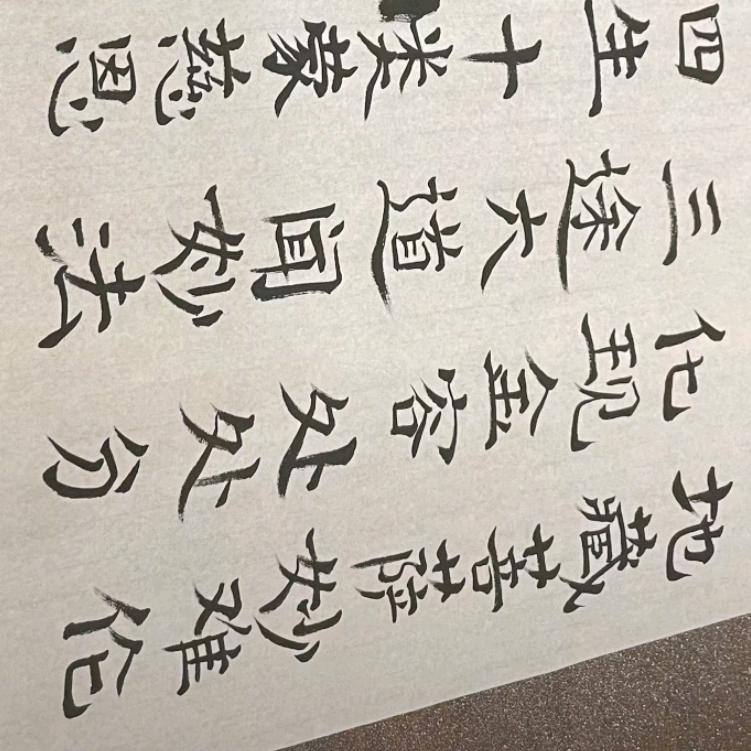 地藏菩萨妙难伦
化现金容处处分
三途六道闻妙法
四生十类蒙慈恩